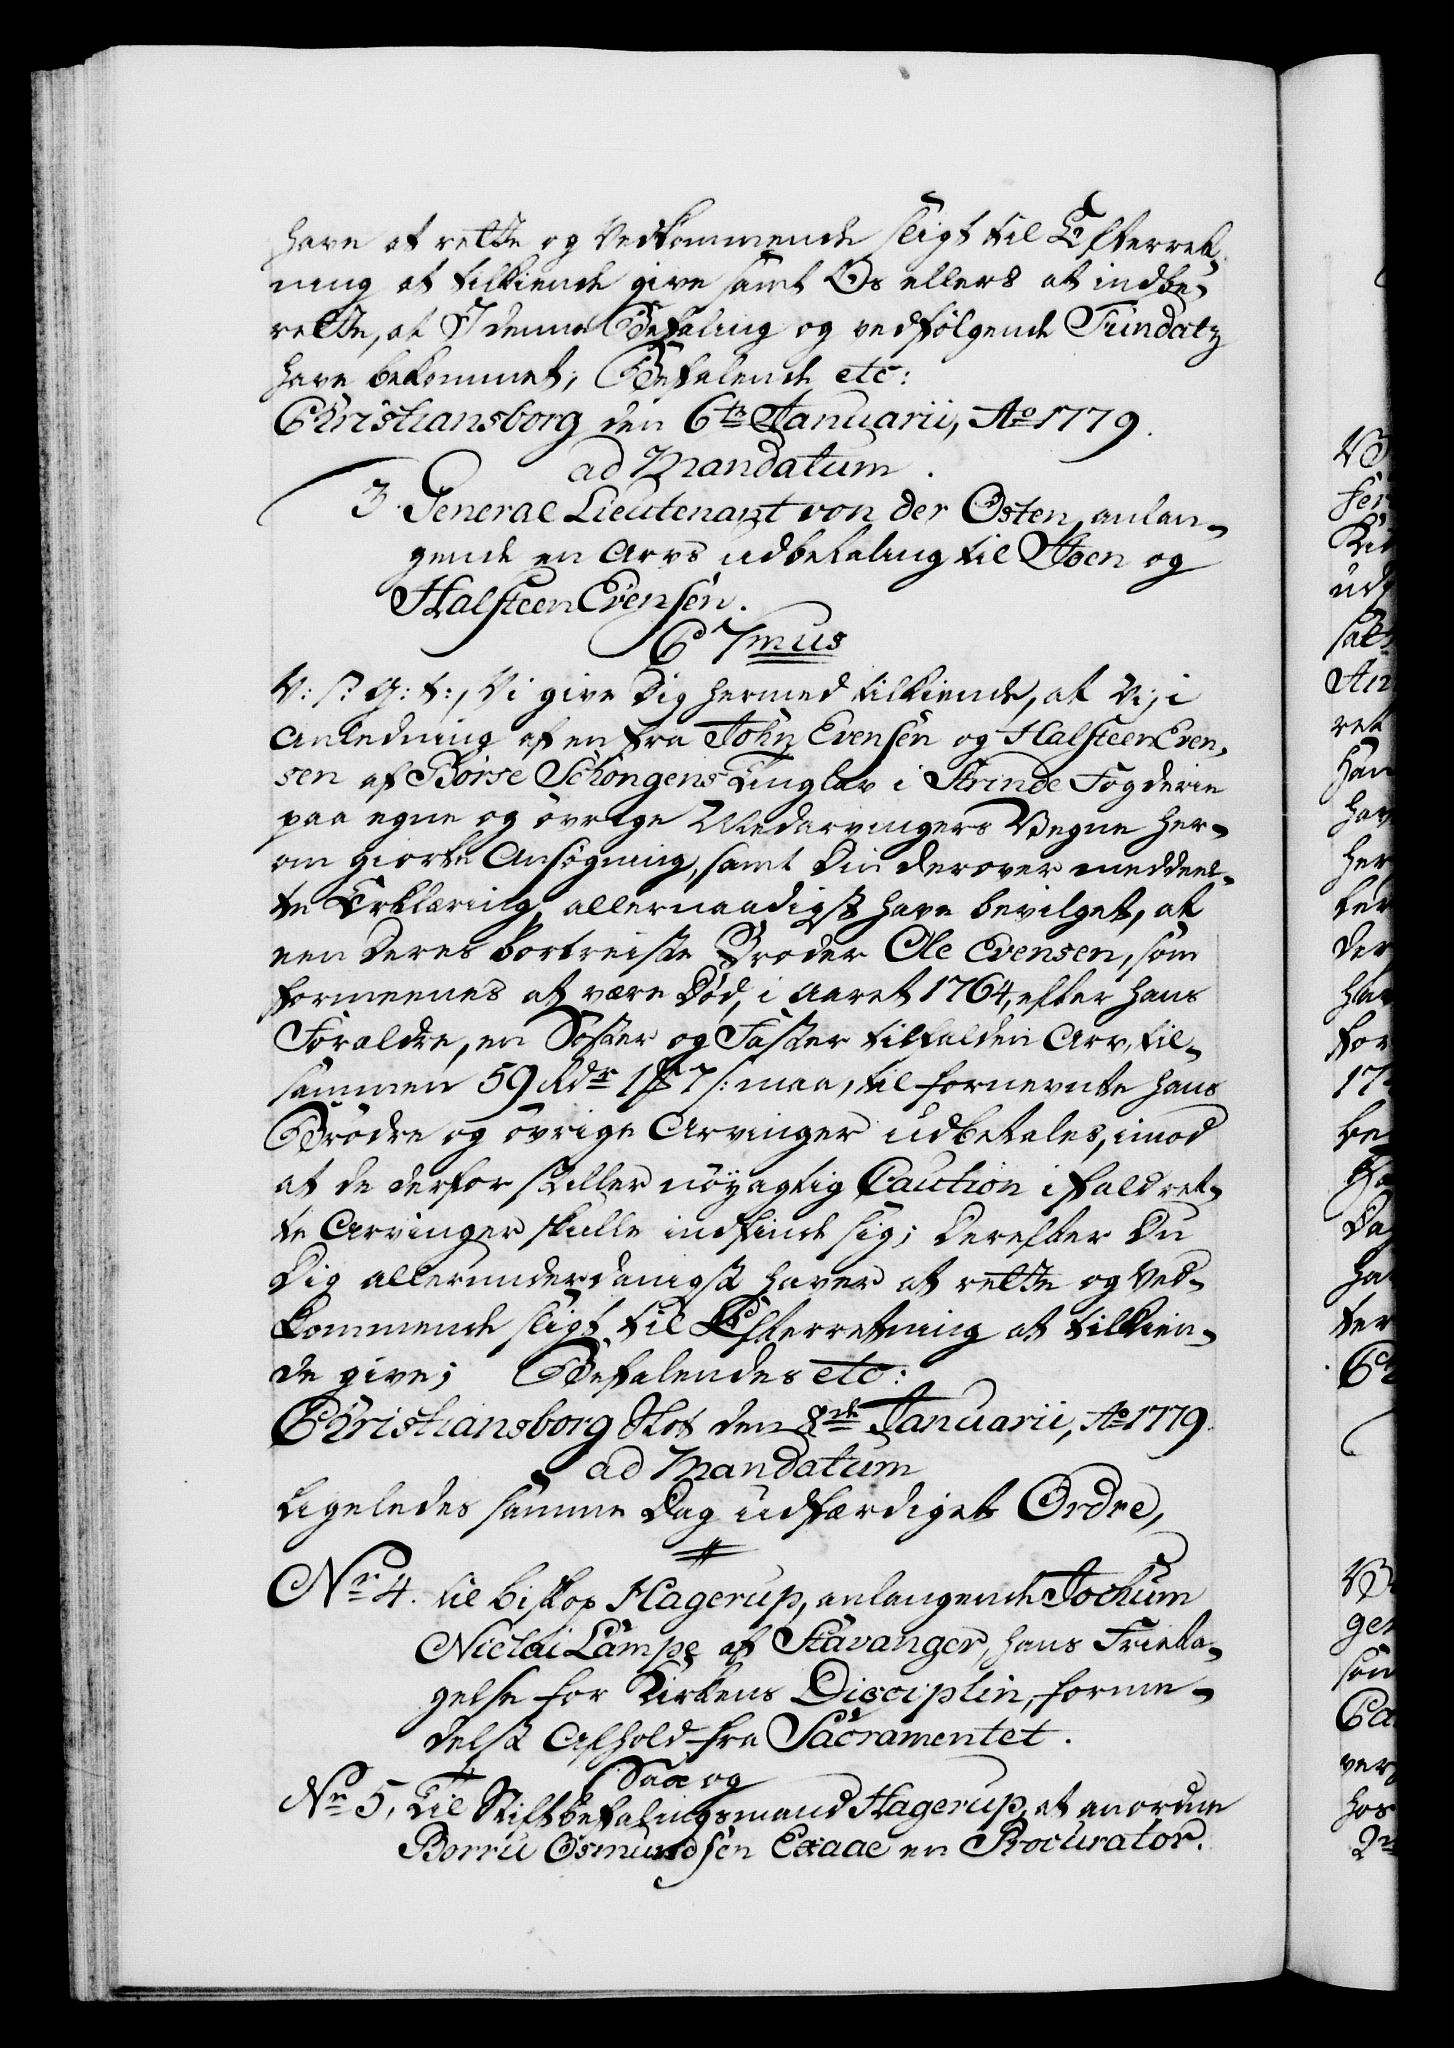 have at rette og Vedkommende sligt til Efterret-
ning at tilkiende give samt Os ellers at indbe-
rette, at I denne Befaling og vedfölgende Fundatz
have bekommet; Befalende etc:
Christiansborg den 6te Januarii, Ao 1779.
ad Mandatum.
3. General Lieutenant von der Osten, anlan-
gende en Arvs udbetaling til Joen og
Halsteen Evensen.
C 7mus
V: s: G: t:, Vi give Dig hermed tilkiende, at Vi, i
Anledning af en fra John Evensen og Halsteen Even-
sen af Börse Schongens Tinglav i Strinde Fogderie
paa egne og övrige Medarvingers Vegne her-
om giorte Ansögning, samt Din derover meddeel-
te Erklæring, allernaadigst have bevilget, at
een deres bortreiste Broder Ole Evensen, som
formeenes at være Död, i Aaret 1764, efter hans
Forældre, en Söster og Faster tilfalden Arv, til-
sammen 59 Rdr 1 ƒ 7 s: maa, til fornevnte hans
Brödre og övrige Arvinger udbetales, imod
at de derfor stiller nöyagtig Caution i fald ret-
te Arvinger skulle indfinde sig; Derefter Du
Dig allerunderdanigst haver at rette og Ved-
kommende sligt til Efterretning at tilkien-
de give; Befalendes etc:
Christiansborg Slot den 8de Januarii, Ao 1779.
ad Mandatum
Ligeledes samme Dag udfærdiget Ordre,
Nr. 4. til Biskop Hagerup, anlangende Jochum
Niclai Lampe af Stavanger, hans Frieta-
gelse for Kirkens Disciplin, forme-
delst Afhold fra Sacramentet.
Saa og
Nr. 5, Til Stiftbefalingsmand Hagerup, at anordne
Borru Osmundsen Exaae en Procurator.